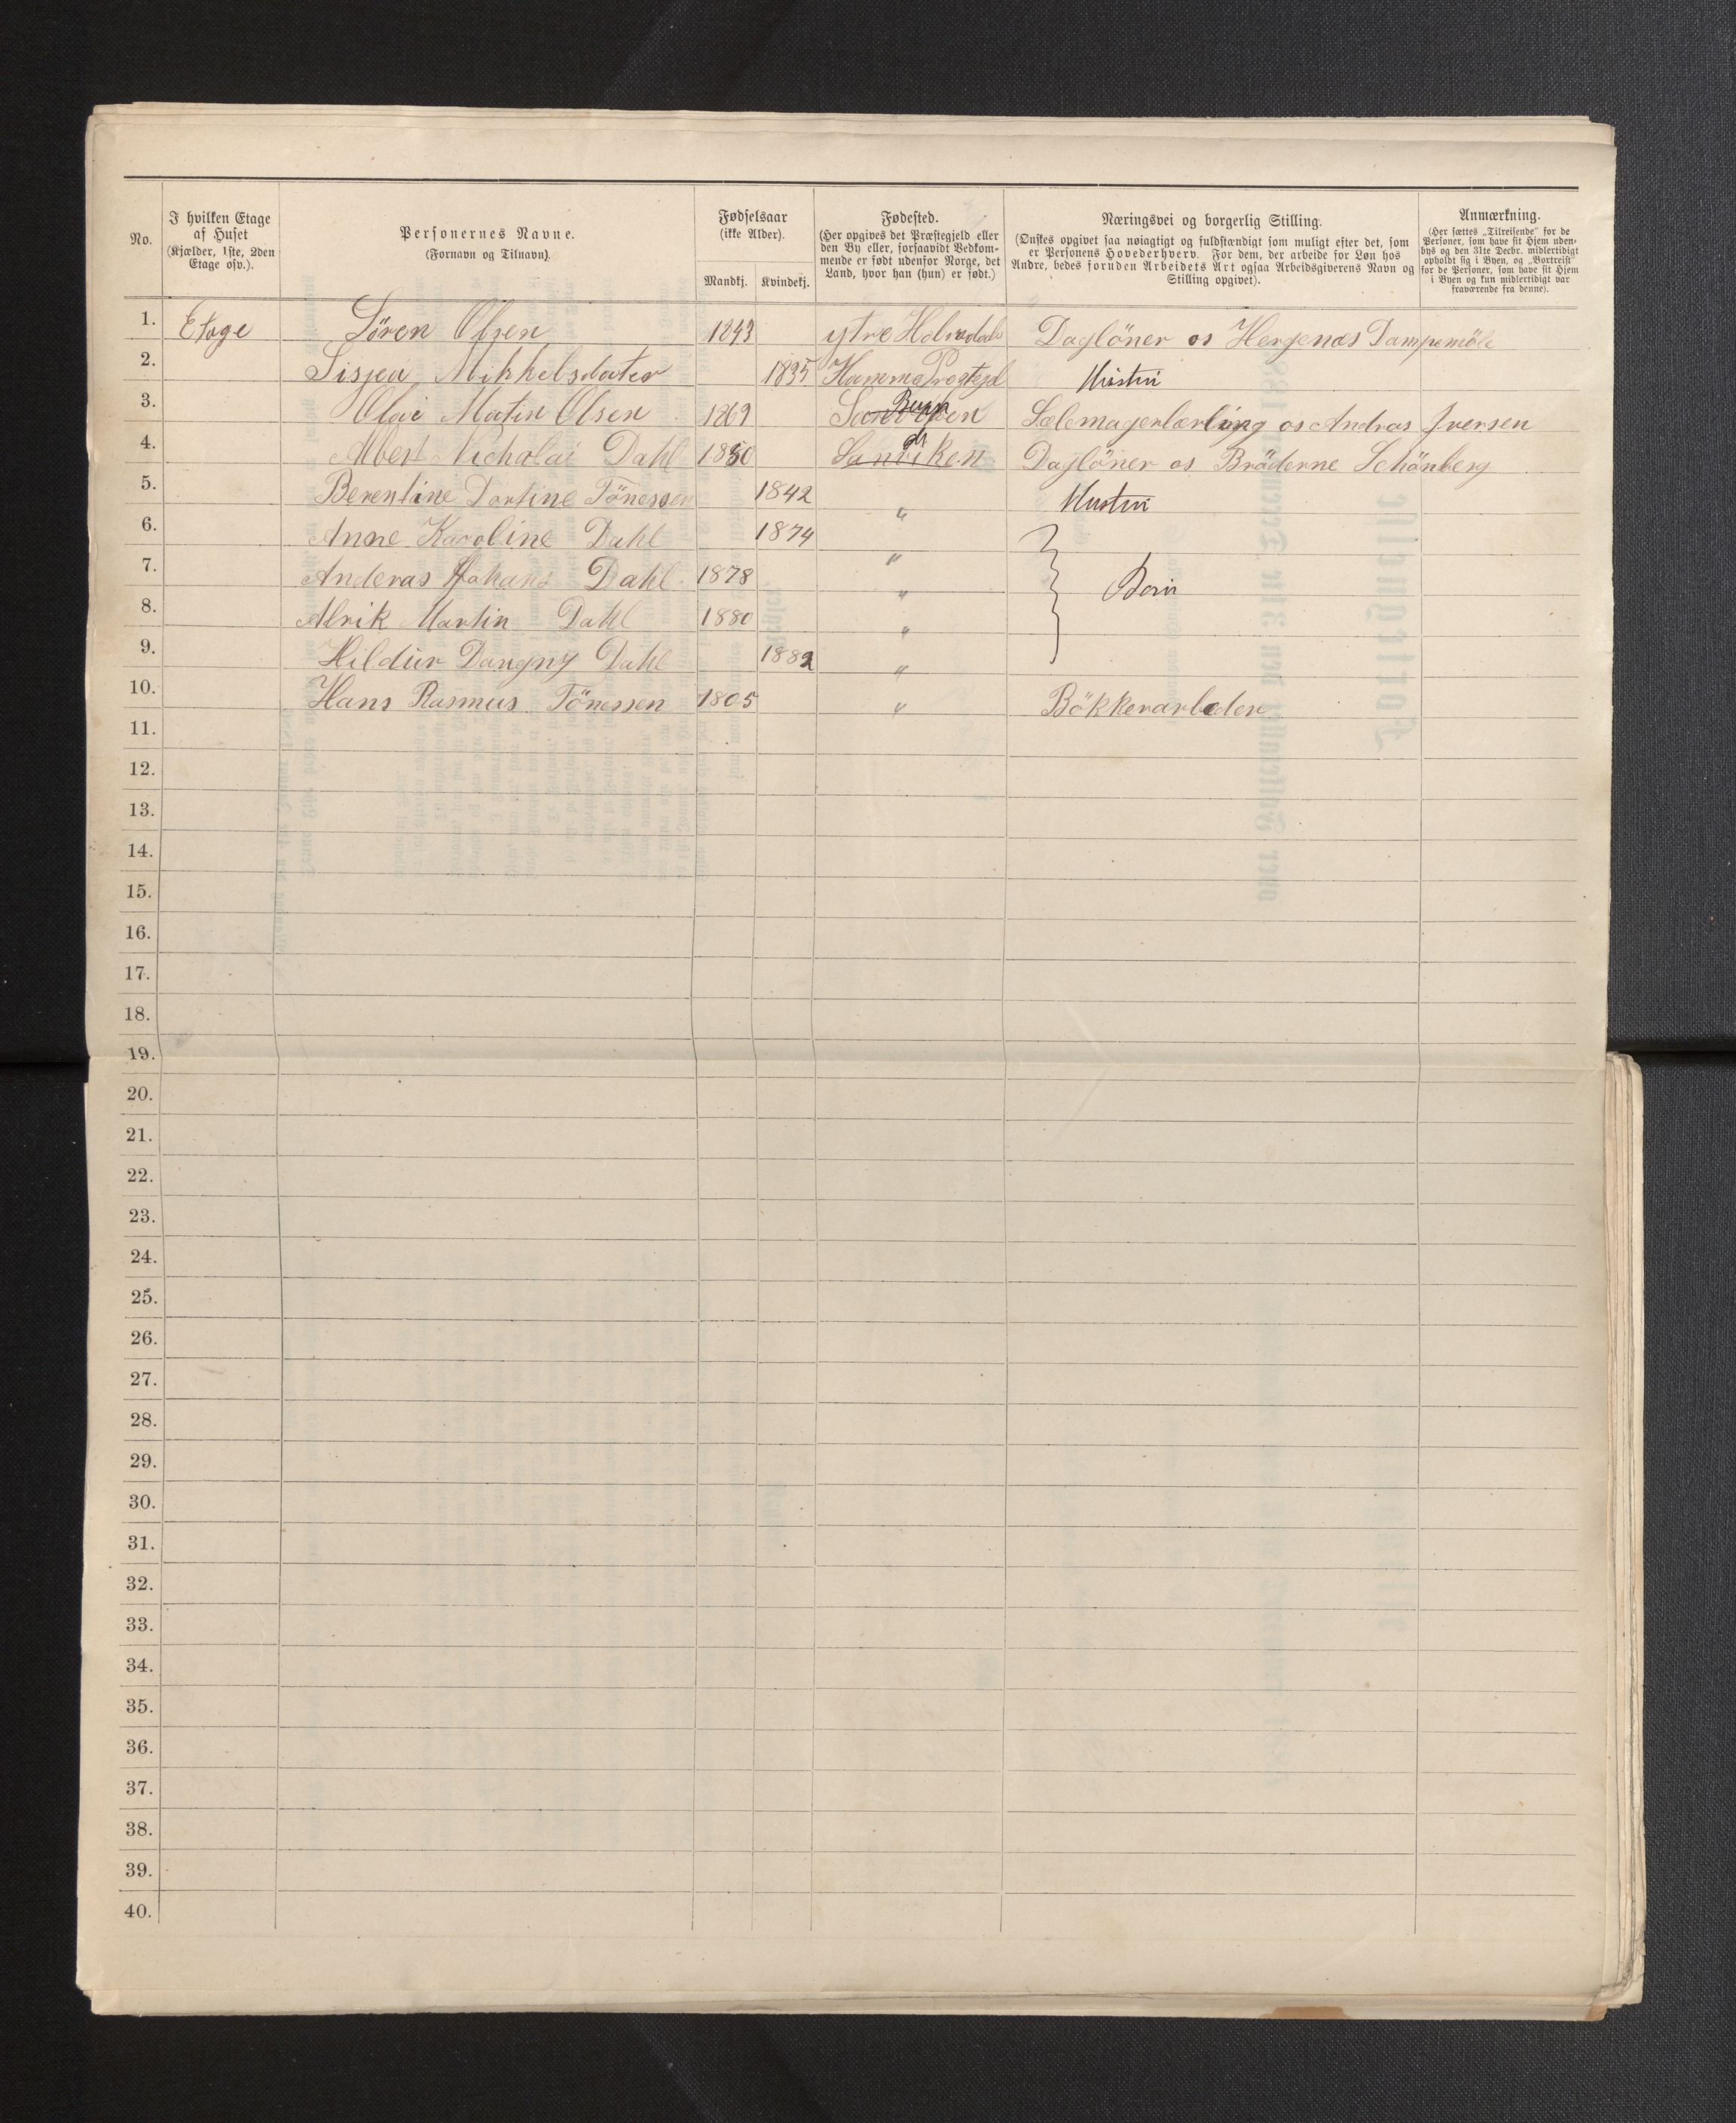 No. I hvilken Etage af Huset (Kjælder, 1ste, 2den Etage osv.). Personernes Navne. (Fornavn og Tilnavn). Fødselsaar (ikke Alder). Mandkj. Kvindekj. Fødested. (Her opgives det Præstegjeld eller den By eller, forsaavidt Vedkommende er født udenfor Norge, det Land, hvor han (hun) er født.) Næringsvei og borgerlig Stilling. (Ønskes opgivet saa nøiagtigt og fuldstændigt som muligt efter det, som er Personens Hovederhverv. For dem, der arbeide for Løn hos Andre, bedes foruden Arbeidets Art ogsaa Arbeidsgiverens Navn og Stilling opgivet). Anmærkning. (Her sættes „Tilreisende" for de Personer, som have sit Hjem udenbys og den 31te Decbr. midlertidigt opholdt sig i Byen, og „Bortreist" for de Personer, som have sit Hjem i Byen og kun midlertidigt var fraværende fra denne).
1. Etage Sören Olsen 1843 ytre Daglöner os Dampemöle
2. Mikkelsdater 1835 Hustru
3. Olai Matin Olsen 1869 Sandviken Sælemagerlærling os Andras Iversen
4. Albert Nicholai Dahl 1850 Sanviken do Daglöner os Bröderne Schönberg
5. Berentine Dortine Tönessen 1842 " Hustru
6. Anne Karoline Dahl 1874 "
7. Anderas Johans Dahl 1878 " Børn
8. Alrik Martin Dahl 1880 "
9. Hildur Dangny Dahl 1882 "
10. Hans Rasmus Tönessen 1805 " Bökkerarbeder
11.
12.
13.
14.
15.
16.
17.
18.
19.
20.
21.
22.
23.
24.
25.
26.
27.
28.
29.
30.
31.
32.
33.
34.
35.
36.
37.
38.
39.
40.